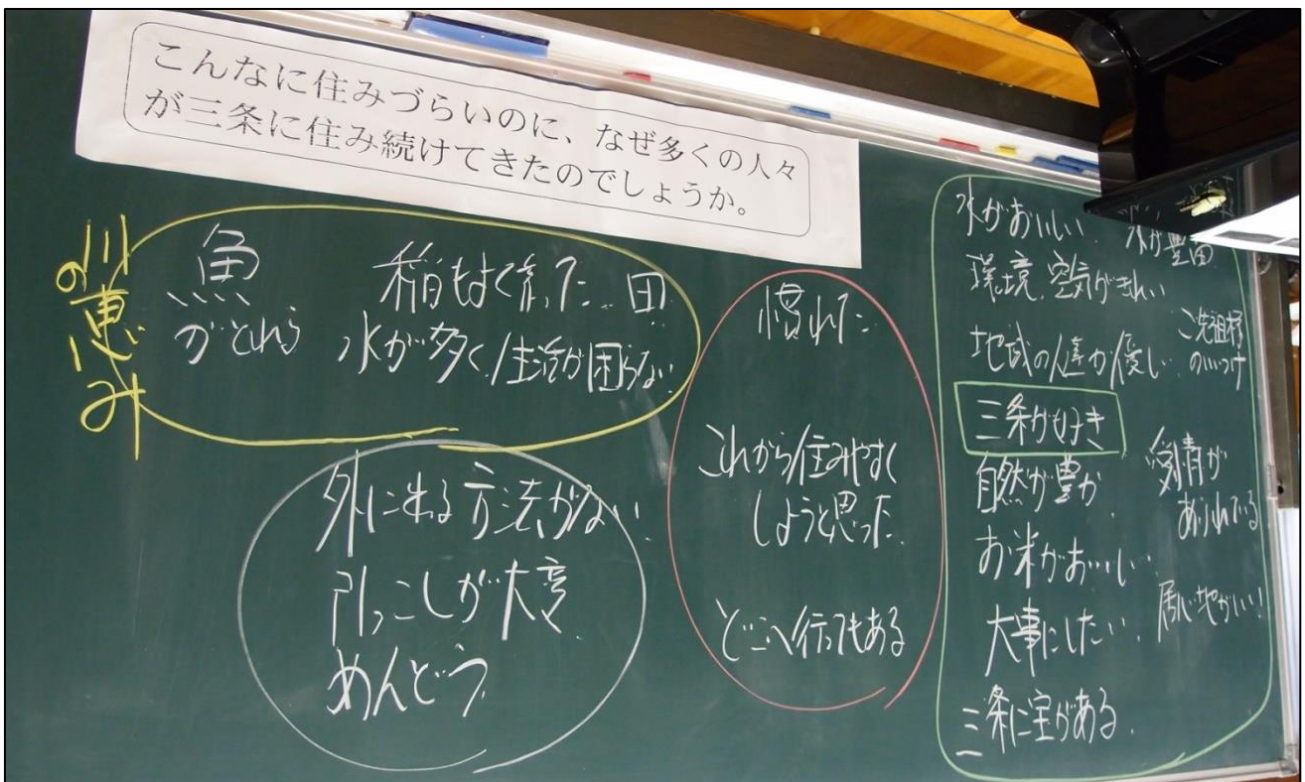 こんなに住みづらいのに、なぜ多くの人々
が三条に住み続けてきたのでしょうか。
川の恵み
魚
がとれる
稲もよく育った 田
水が多く生活が困らない
外に出る方法がない
引っこしが大変
めんどう
慣れた
これから住みやすく
しようと思った
どこへ行ってもある
水がおいしい 水が豊富
環境、空気がきれい
地域の人達が優しい
ご先祖様
のいいつけ
三条が好き
自然が豊か
愛情が
あふれている
お米がおいしい
大事にしたい
居心地がいい!
三条に宝がある